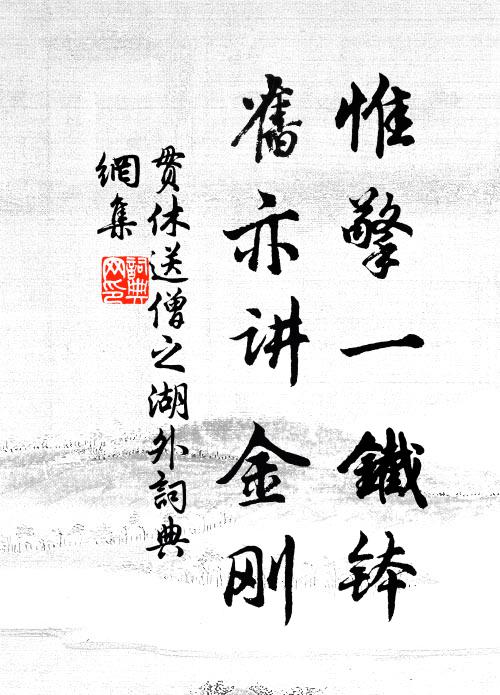 惟擎一鐵钵
舊亦讲金刚
贯休送僧之湖外詞典
網集
詞典
网印